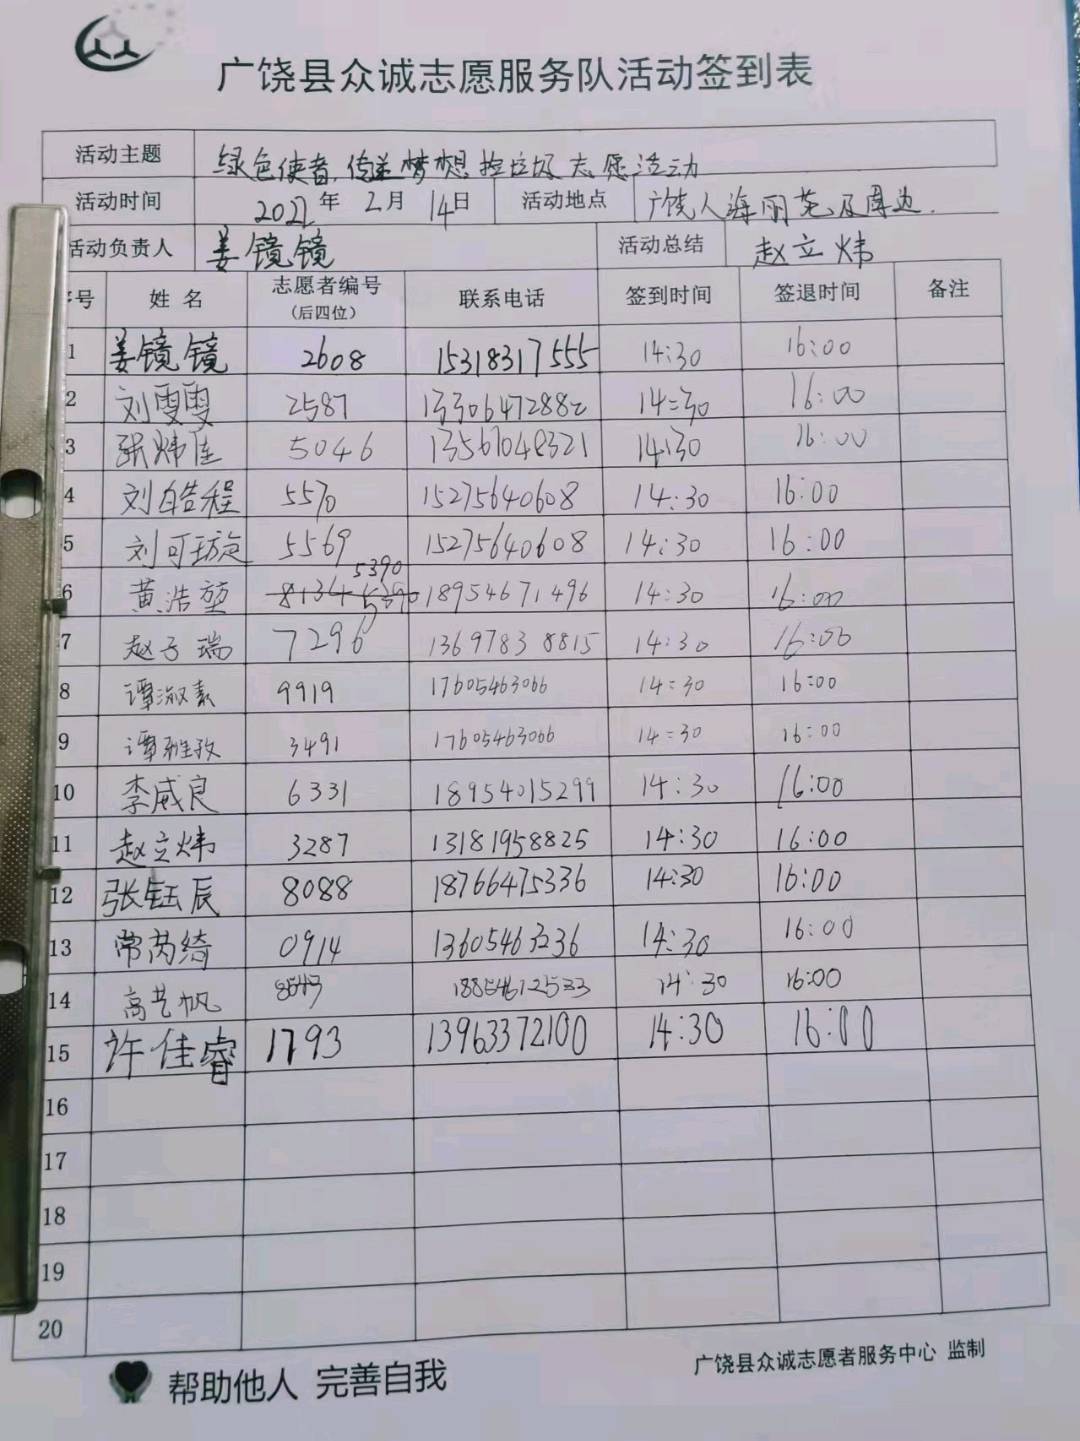 广饶县众诚志愿服务队活动签到表
活动主题 绿色使者,传递梦想捡垃圾志愿活动
活动时间 2022年 2月 14日 活动地点 广饶人海丽苑及周边.
活动负责人 姜镜镜 活动总结 赵立炜
序号 姓名 志愿者编号 联系电话 签到时间 签退时间 备注
(后四位)
1 姜镜镜 2608 15318317555 14:30 16:00
2 刘雯雯 2587 13306472882 14:30 16:00
3 张炜佳 5046 14:30 16:00
4 刘皓程 5570 15275640608 14:30 16:00
5 刘可璇 5569 15275640608 14:30 16:00
6 黄浩堃 8134 5390 5390 18954671496 14:30 16:00
7 赵子瑞 7296 13697838815 14:30 16:00
8 谭淑素 9919 17605463066 14:30 16:00
9 谭雅孜 3491 17605463066 14:30 16:00
10 李威良 6331 18954015299 14:30 16:00
11 赵立炜 3287 13181958825 14:30 16:00
12 张钰辰 8088 18766475336 14:30 16:00
13 常芮绮 0914 13605463236 14:30 16:00
14 高艺帆 18854612533 14:30 16:00
15 许佳睿 1793 13963372100 14:30 16:00
16
17
18
19
20
帮助他人 完善自我
广饶县众诚志愿者服务中心 监制